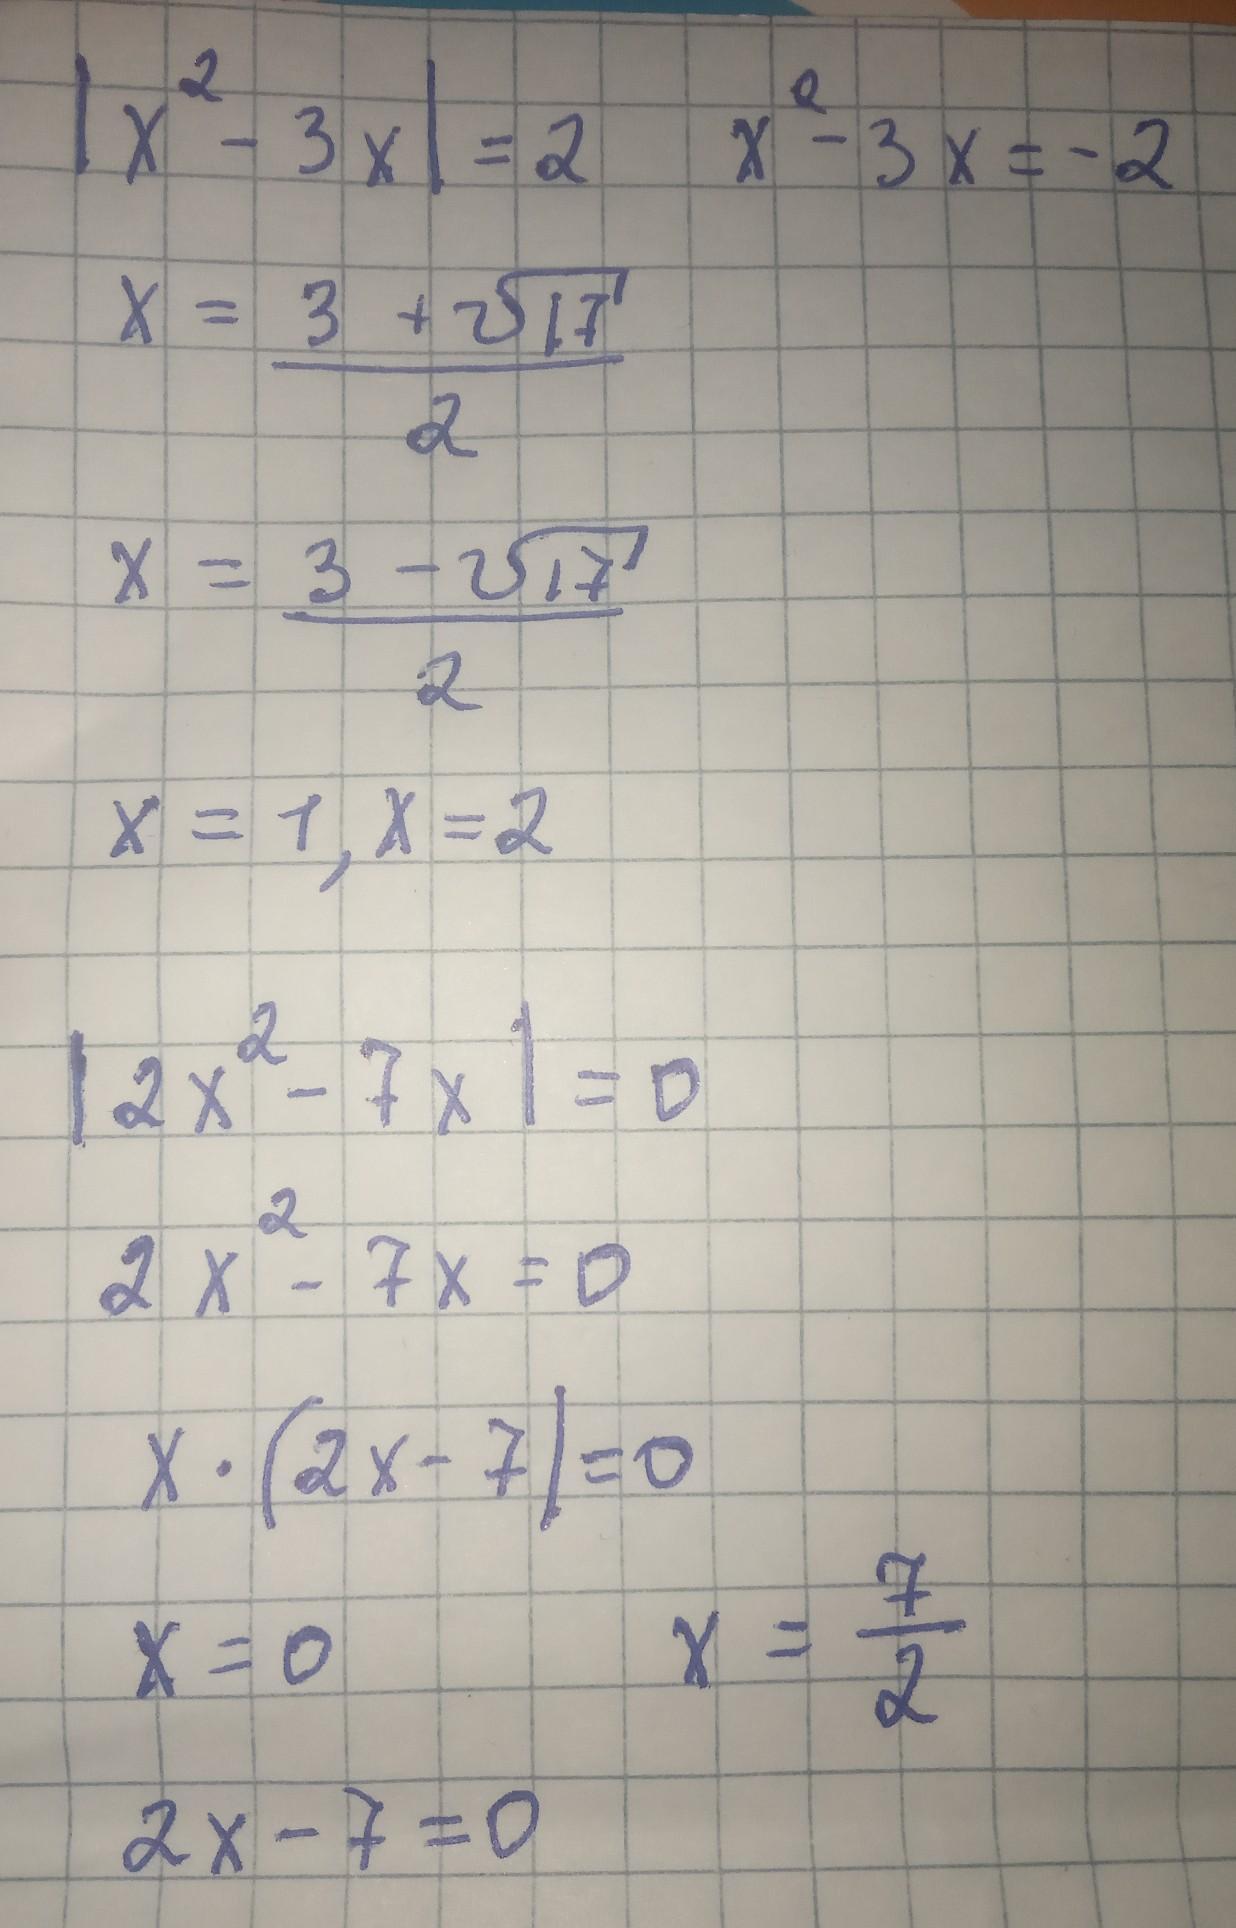 |x² - 3x| = 2   x² - 3x = -2
x = (3 + √17)/2
x = (3 - √17)/2
x = 1, x = 2
|2x² - 7x| = 0
2x² - 7x = 0
x · (2x - 7| = 0
x = 0   x = 7/2
2x - 7 = 0